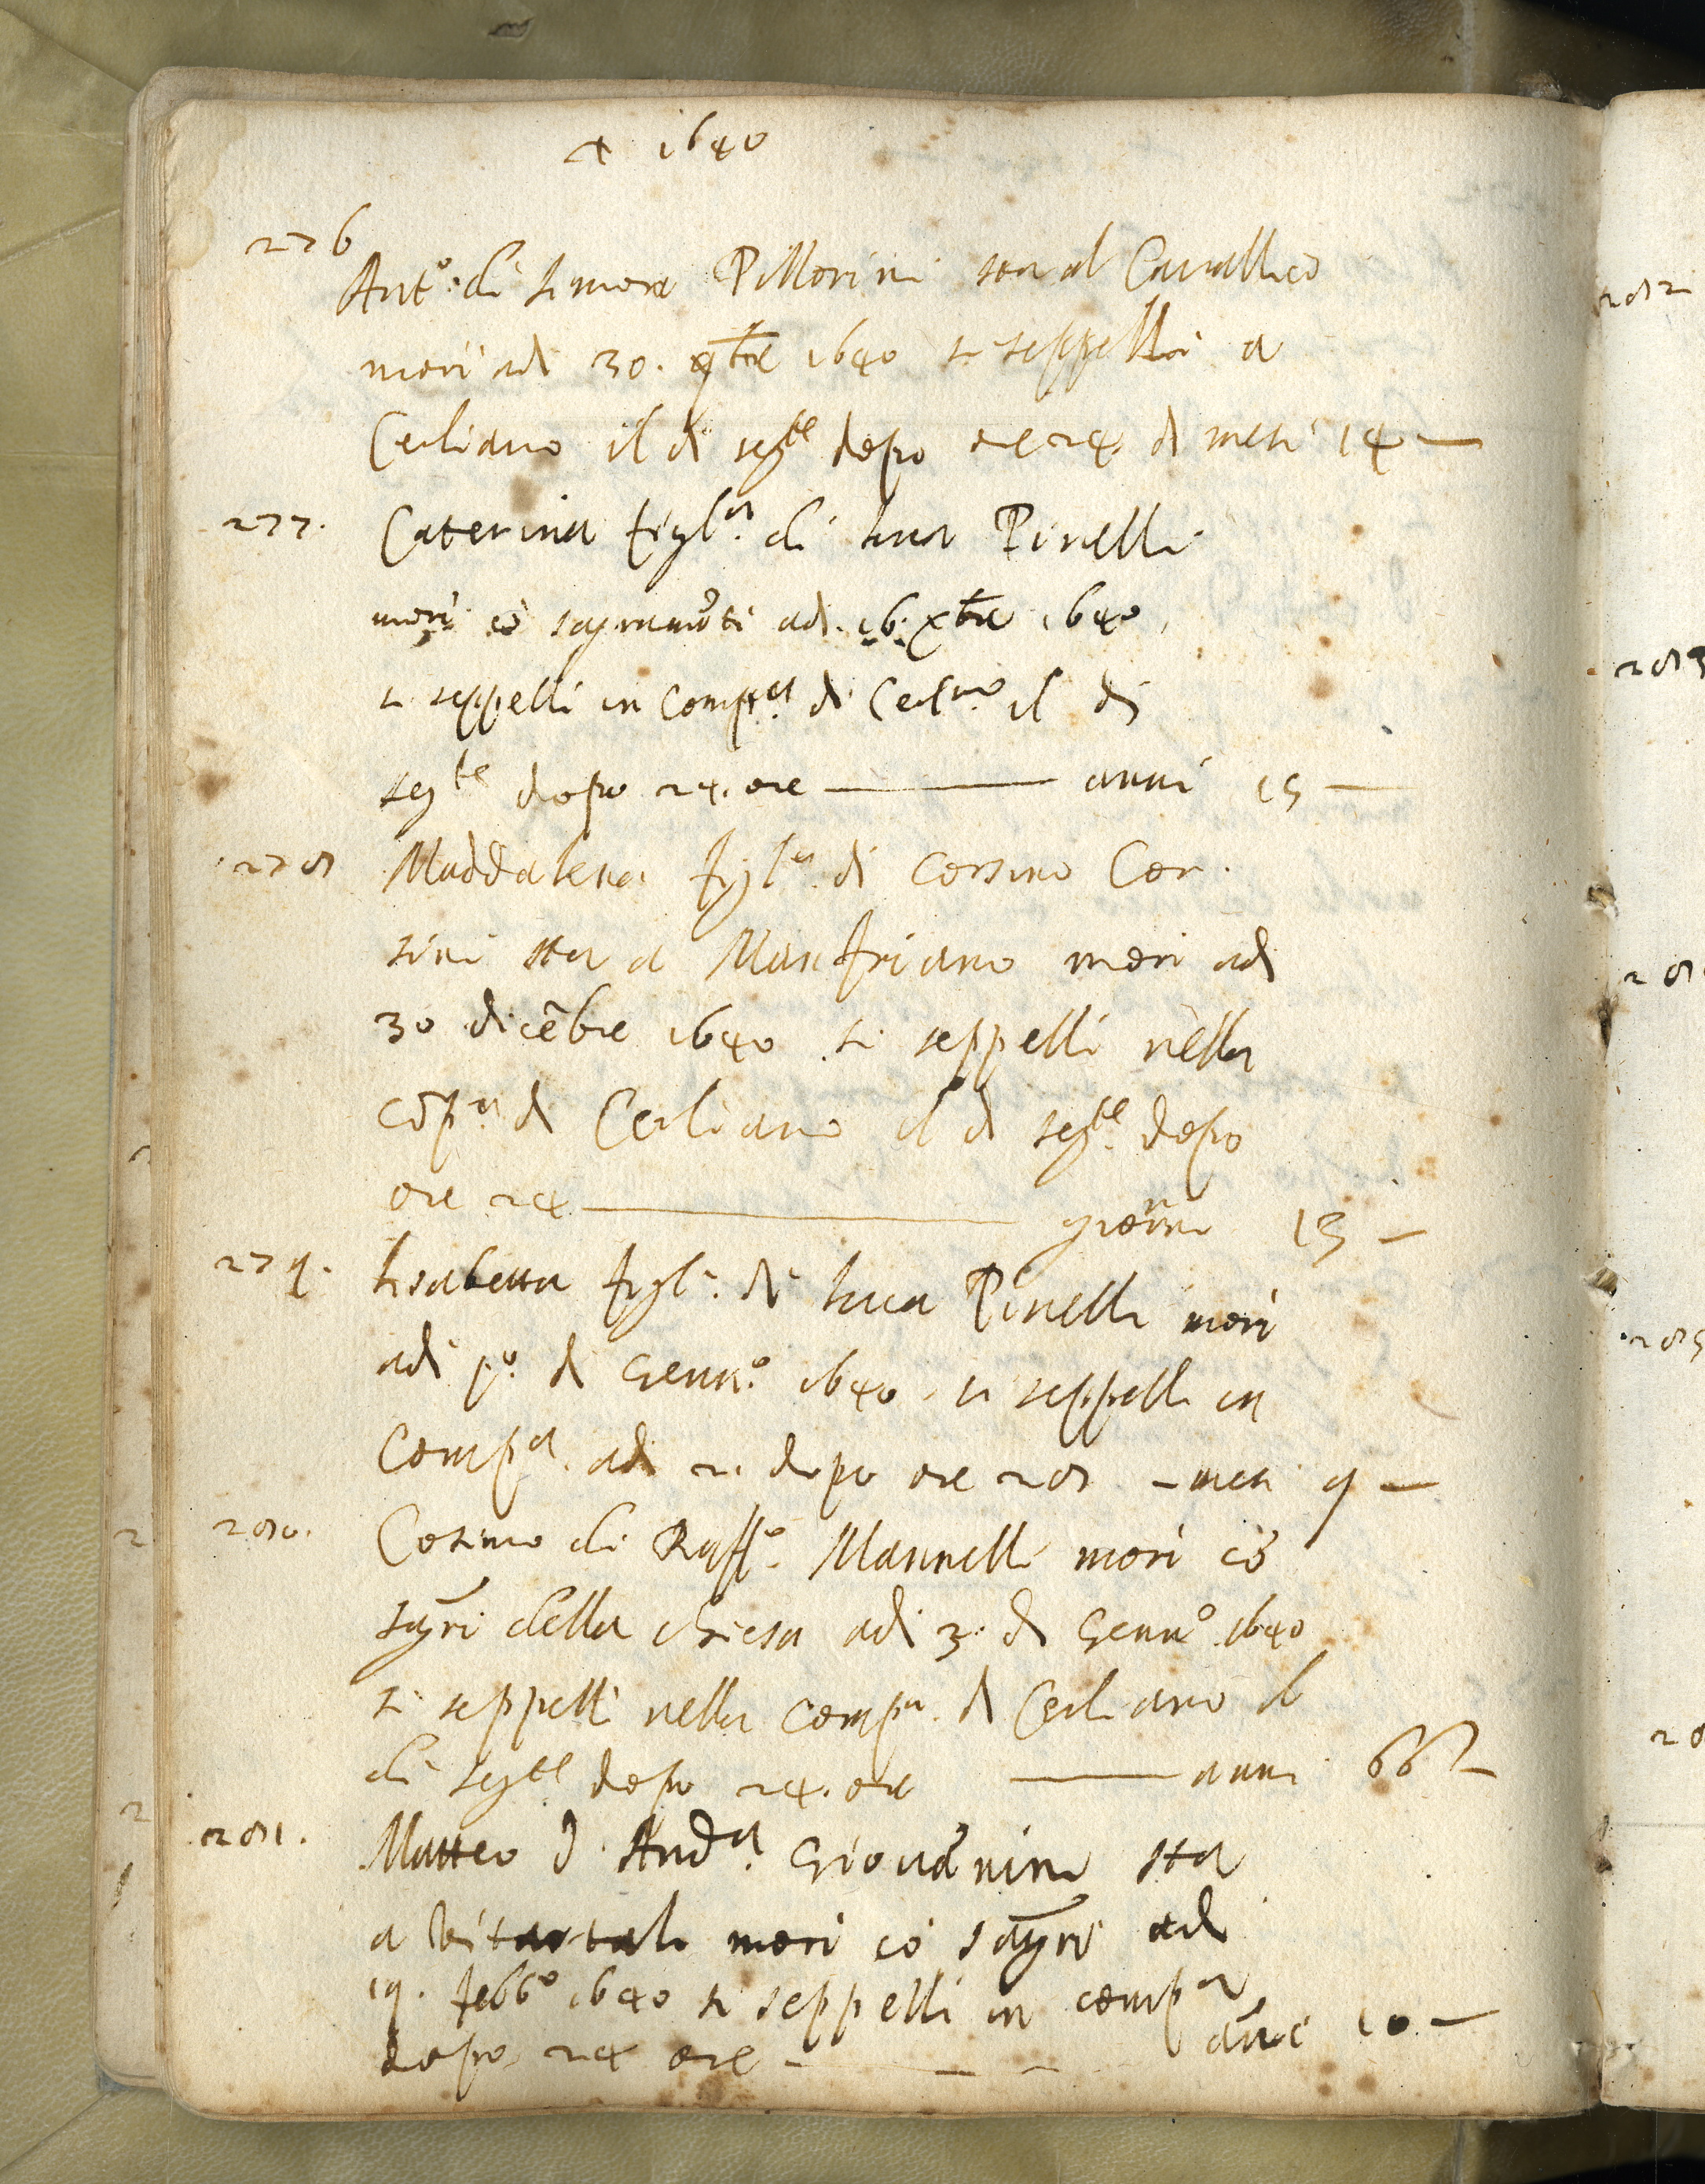 1640
276
Ant.º di Simone Pillorini sta al Cavallico
morì adi 30. 9bre 1640 si seppellì a
Cerliano il dì seg.te dopo ore 24. di mesi 14 —
277. Caterina figl.a di Luca Pinelli
morì cō sagramēti adi. 16. Xbre 1640,
si seppellì in Comp.a di Cerl.no il dì
seg.te dopo 24. ore — anni 15 —
278 Maddalena figl.a di Corsino Cor.
sini sta a Manfriano morì adi
30 dicēbre 1640 si seppellì nella
cōp.a di Cerliano il dì seg.te dopo
ore 24 — giorni 15 —
279. Lisabetta figl.a di Luca Pinelli morì
adi p.º di Genn.º 1640. si seppellì in
Comp.a adi 2. dopo ore 28 - mesi 9 —
280. Cosimo di Raff.º Mannelli morì cō
sag.ri della chiesa adi 3. di Genn.º 1640
si seppellì nella Comp.a di Cerliano il
dì seg.te dopo 24. ore — anni 66
281. Matteo d And.a Giovānini sta
a morì cō sagri adi
19. febb.º 1640 si seppellì in comp.a
dopo 24 ore - — - anni 10 —
282
283
28
285
28